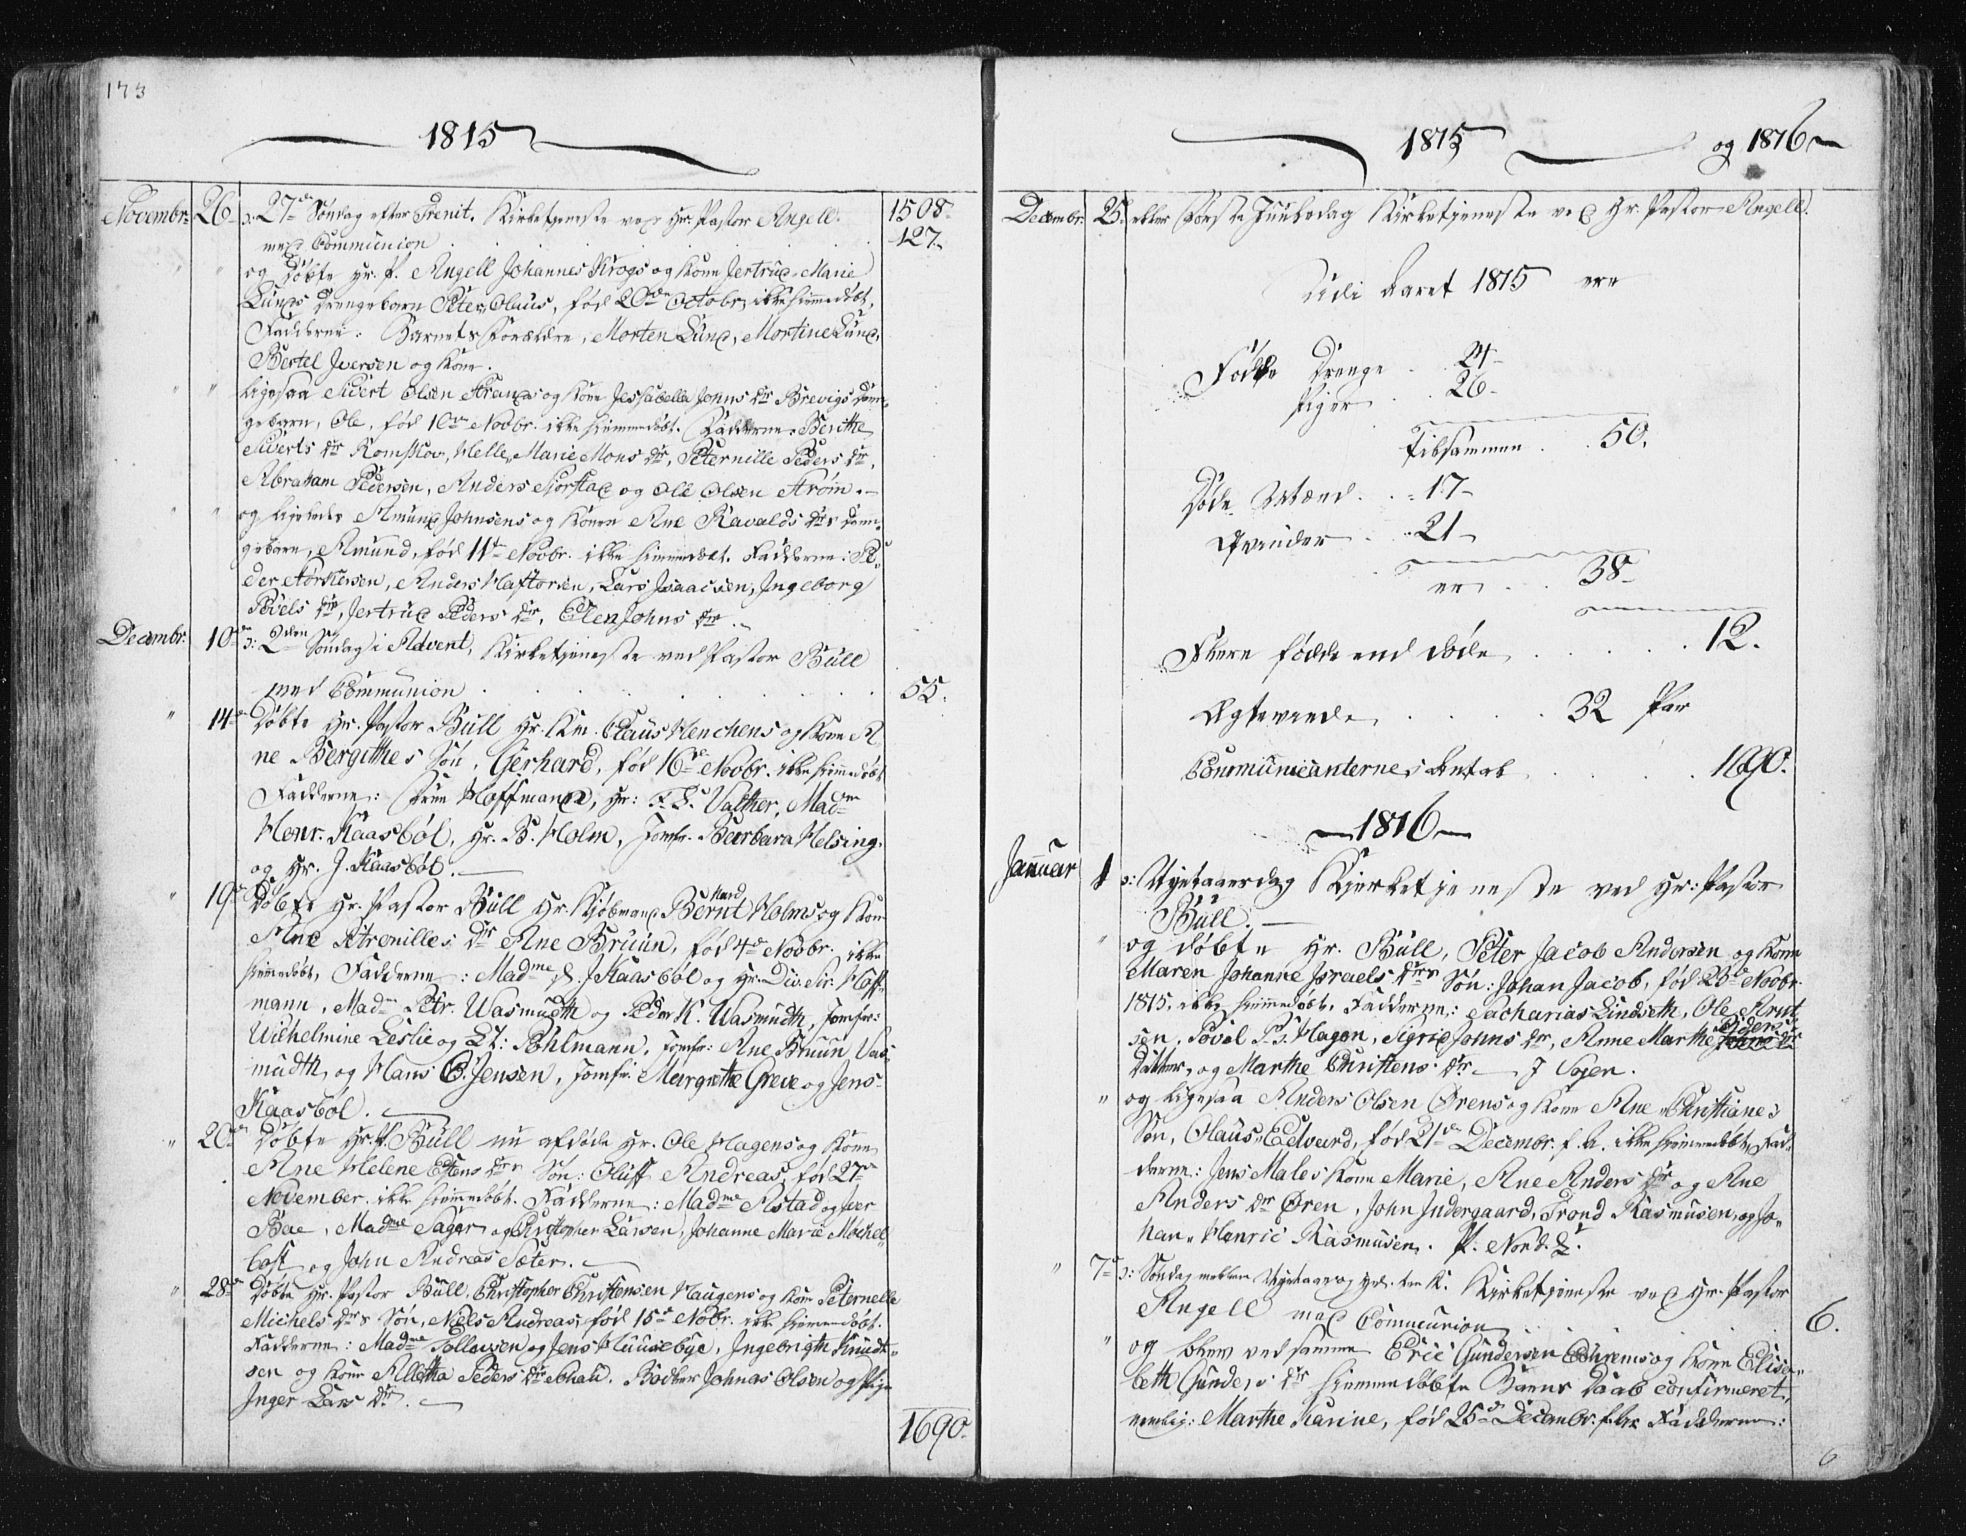 173
1815
Novembr: 26 ɔ: 27de Søndag efter Trenit. Kirketjeneste ved Hr. Pastor Angell. 1508
med Communion 127.
og Døbte Hr. P. Angell Johannes Krogs og Kone Jertrud Marie
Lunds Drengebarn Peter Olaus, fød 20de Octobr. ikke hjemmedøbt,
Fadderne: Barnets Forældre, Morten Lund, Mortine Lund,
Bertel Iversen og Kone.
" " Ligesaa Sivert Olsen Strands og Kone Jessabella Jonns Dr Brevigs Dren-
gebarn, Ole, fød 10de Novbr. ikke hjemmedøbt. Fadderne: Berithe
Siverts Dr Romskov, Helle Marie Mons Dr, Peternille Peders Dr,
Abraham Pedersen, Anders Siorstad og Ole Olsen Strøm.
" " og ligeledes Amund Johnsens og Konen Ane Ravalds Drs Dren-
gebarn, Amund, fød 11te Novbr. ikke hjemmedøbt. Fadderne: Pe-
der Torkersen, Anders Haftorsen, Lars Isaacsen, Ingeborg
Povels Dr, Jertrud Peders Dr, Ellen Johns Dr.
Decembr: 10de ɔ: 2den Søndag i Advent, Kirketjeneste ved Pastor Büll
med Communion 55.
" 14de Døbte Hr. Pastor Büll Hr. Km. Claus Henchens og Kone A-
ne Bergithes Søn, Gerhard, fød 16de Novbr. ikke hjemmedøbt
Fadderne: Frue Hoffmann, Hr: F. S. Valther, Madme
Henr. Kaasbøl, Hr. B. Holm, Jomfr. Barbara Helsing,
og Hr. J. Kaasbøl.
" 19de Døbte Hr. Pastor Büll Hr. Kjøbmand Bernt Hard Holms og Kone
Ane Petronilles Dr Ane Bruun, fød 4de Novbr. ikke
hjemmedøbt, Fadderne: Madme J. Kaasbøl og Hr. Div. Kir. Hoff-
mann, Madme Petr. Wasmudth og Peder K. Wasmudth, Jomfr:
Wilhelmine Leslie og Lt: Pohlmann, Jomfr: Ane Bruun Vas-
mudth, og Hans C. Jensen, Jomfr. Margrethe Greve og Jens
Kaasbøl.
" 20de Døbte Hr. P. Büll nu afdøde Hr. Ole Hagens og Kone
Ane Helene Ellens Drs Søn: Oluff Andreas, fød 27de
November. ikke hjemmedøbt. Fadderne: Madme Astad og Iver
Bae, Madme Sager og Christopher Larsen, Johanne Marie Mechel-
bost og John Andreas Sæter.
" 28de Døbte Hr. Pastor Büll, Christopher Christensen Haugens og Kone Peternelle
Michels Drs Søn, Niels Andreas, fød 15de Nobr. ikke hjemmedøbt.
Fadderne: Madme Tollevsen og Jens Huusebye, Ingebrigth Knudt-
sen og Kone Alletha Peders Dr Schau. Bødker Johnas Olsen og Pige
Inger Lars Dr.
1690
1815 og 1816
Decembr: 25de eller Første Juuledag Kirketjeneste ved Hr. Pastor Angell.
Udi Aaret 1815 ere
Fødde Drenge 24
Piger 26
Tilsammen 50.
Døde Mænd 17
Qvinder 21
er 38
Flere fødde end døde 12.
Ægteviede 32 Par
Communicanternes Antal 1690.
1816
Januar 1 ɔ: Nytaarsdag Kirketjeneste ved Hr: Pastor
Büll.
" og døbte Hr. Büll, Peter Jacob Andersen og Kone
Maren Johanne Israels Drs Søn: Johan Jacob, fød 23de Novbr.
1815, ikke hjemmedøbt. Fadderne: Sacharias Lindseth, Ole Knut-
sen, Povel P. S. Hagen, Sigrid Johns Dr, Anne Marthe Peders
Datter, og Marthe Christens Dr
" og ligesaa Anders Olsen Ørens og Kone Ane Christianes
Søn, Olaus Edvard, fød 21de Decembr. f. A. ikke hjemmedøbt, Fad-
derne: Jens Males Kone Marie, Ane Anders Dr og Ane
Anders Dr Øren, John Indergaard, Trond Rasmusen, og Jo-
han Henric Rasmusen. P. Nord. L.
" 7de ɔ: Søndag mellem Nytaar og Hell. tre K. Kirketjeneste ved Hr. Pastor
Angell med Communion 6.
" og blev ved samme Eric Gundersen Echrems og Kone Elisa-
beth Gunders Dr hjemmedøbte Barns Daab confirmeret,
nemlig: Marthe Karine, fød 25de Decembr. f. Aar Fadderne:
6